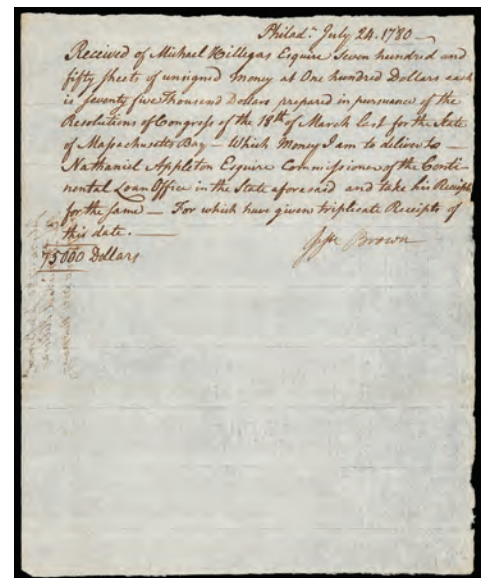 Philad.ª July 24. 1780 —
Received of Michael Hillegas Esquire Seven hundred and
fifty Sheets of unsigned Money at One hundred Dollars each
is seventy five Thousand Dollars prepared in pursuance of the
Resolutions of Congress of the 18th of March last for the State
of Massachusetts Bay — Which Money I am to deliver to —
Nathaniel Appleton Esquire Commissioner of the Conti-
nental Loan Office in the State aforesaid and take his Receipt
for the same — For which have given triplicate Receipts of
this date. —
Brown
75000 Dollars